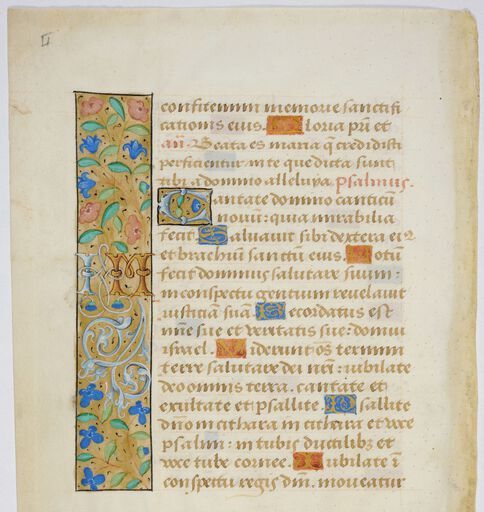 confitemini memorie sanctifi
cationis eius. Gloria pri et
an. Beata es maria q credidisti
perficientur in te que dicta sunt
tibi a domino alleluya Psalmus.
Cantate domino canticū
novum: quia mirabilia
fecit Saluauit sibi dextera ei9
et brachiū sanctū eius. Notū
fecit dominus salutare suum:
in conspectu gentium reuelauit
iusticiam suā. Recordatus est
mīe sue et veritatis sue: domui
israel. Viderunt oēs termini
terre salutare dei nr̄i: iubilate
deo omnis terra. cantate et
exultate et psallite. Psallite
dn̄o in cithara in cithara et voce
psalmi: in tubis ductilib3 et
voce tube cornee. Iubilate ī
conspectu regis dn̄i. moueatur